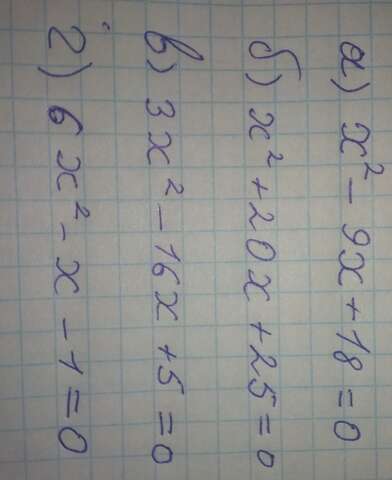 а) x² - 9x + 18 = 0
б) x² + 20x + 25 = 0
в) 3x² - 16x + 5 = 0
г) 6x² - x - 1 = 0